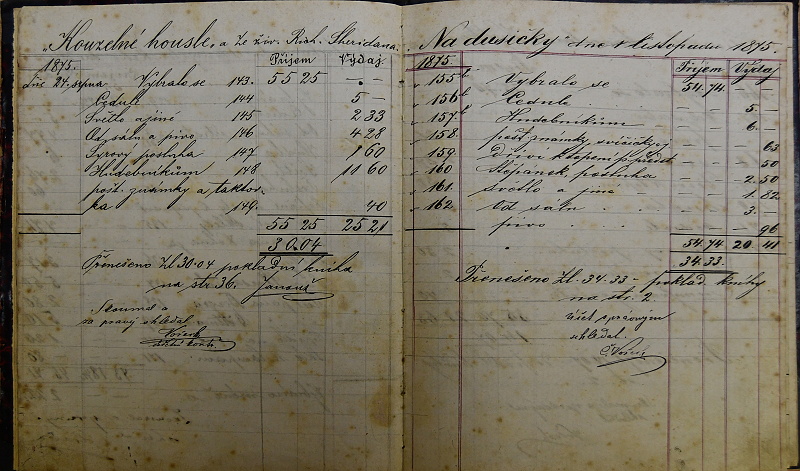 "Kouzelné housle" a ze živ. Rich. Sheridana.
1875. Příjem Výdaj
dne 24. srpna Vybralo se 143. 55 25 — . —
Cedule 144 5 —
Světlo a jiné 145 2 33
Od sálu a pivo 146 4 28
Syrový posluha 147 1 60
Hudebníkům 148 11 60
pošt. známky a taktov-
ka 149. 40
55 25 25 21
30.04
Přenešeno Zl 30.04 pokladní kniha
na str 36. Janouš
Skoumal a
za pravý shledal
"Na dušičky" dne 1 listopadu 1875.
1875. Příjem Výdaj
155 Vybralo se 54.74. — —
156 Cedule — — 5. —
157. Hudebníkům — — 6. —
158. pošt. známky — — 63
159. — — 50
160 posluha — — 2. 50
161. Světlo a jiné — — 1. 82
162. Od sálu — — 3. —
pivo — — 96
54.74 20 41
34.33.
Přenešeno Zl. 34.33 – poklad. knihy
na str. 2.
účet správným
shledal.